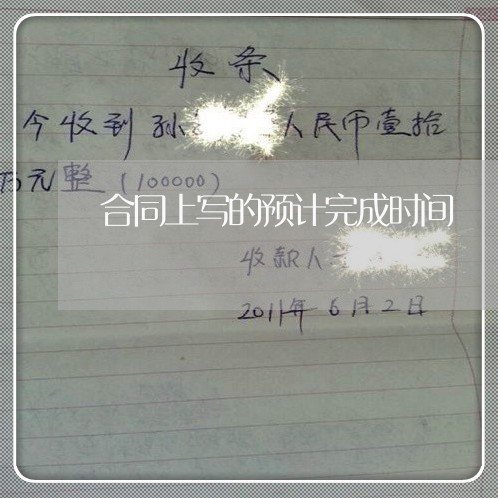 收条
今收到孙 人民币壹拾
万元整（100000）
合同上写的预计完成时间
收款人
2011年6月2日